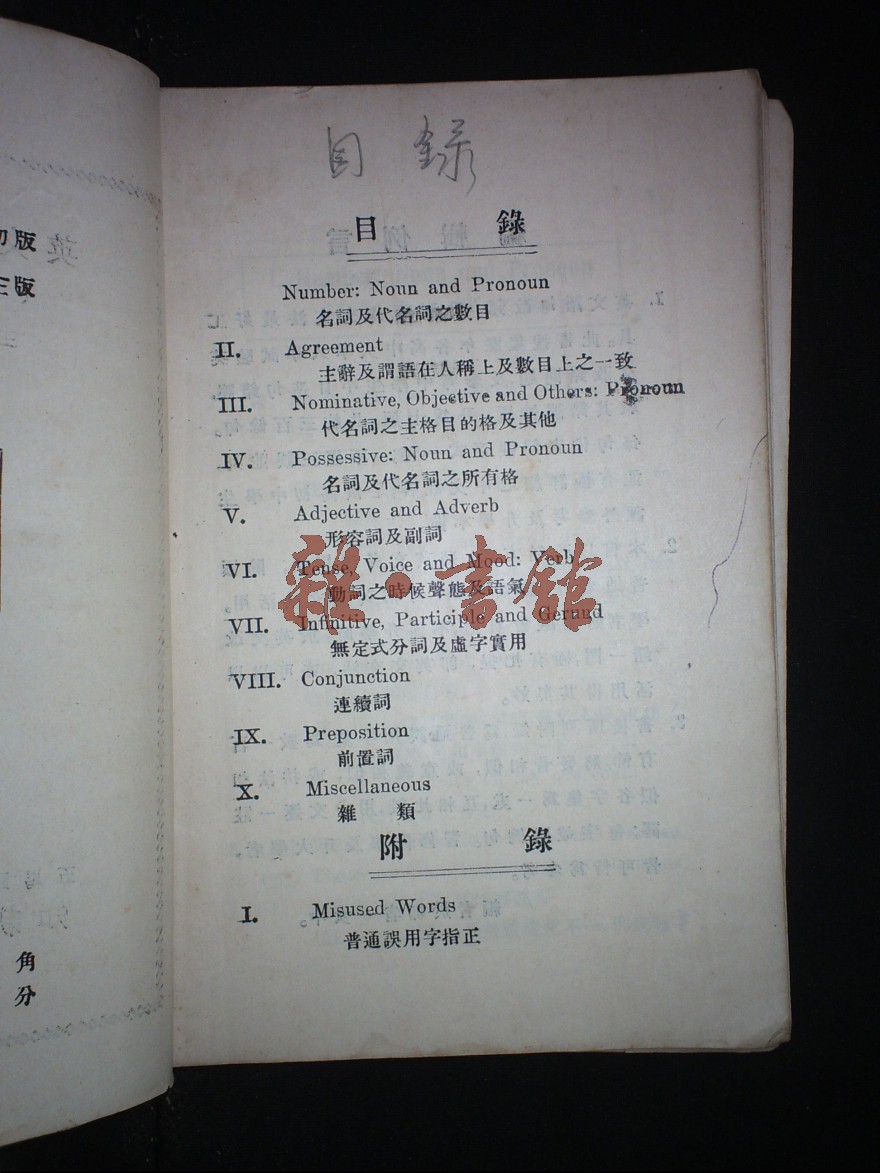 初版
三版
角
分
目 錄
目 錄
Number: Noun and Pronoun
名詞及代名詞之數目
II. Agreement
主辭及謂語在人稱上及數目上之一致
III. Nominative, Objective and Others: Pronoun
代名詞之主格目的格及其他
IV. Possessive: Noun and Pronoun
名詞及代名詞之所有格
V. Adjective and Adverb
形容詞及副詞
VI. Tense, Voice and Mood: Verb
動詞之時候聲態及語氣
雜·書館
VII. Infinitive, Participle and Gerund
無定式分詞及虛字實用
VIII. Conjunction
連續詞
IX. Preposition
前置詞
X. Miscellaneous
雜 類
附 錄
I. Misused Words
普通誤用字指正